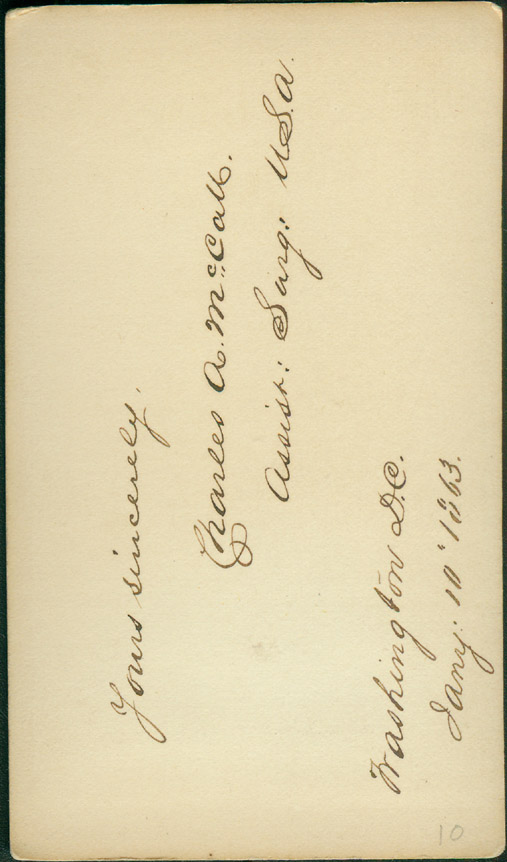 Yours sincerely.
Charles A. McCall.
Assist: Surg: U.S.A.
Washington D.C.
Jany: 10" 1863.
10